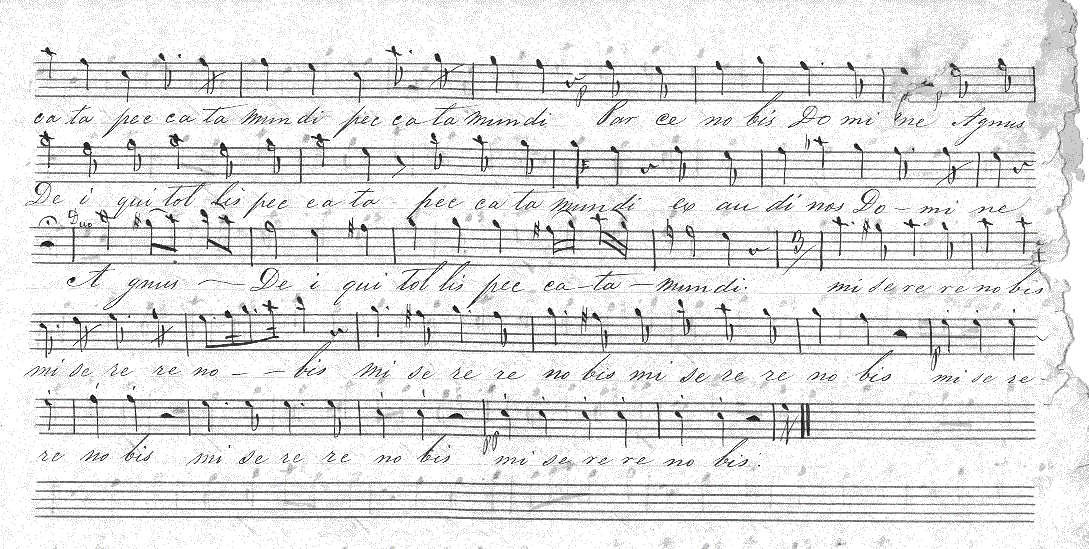 ca ta pec ca ta mundi pec ca ta mundi Par ce no bis Do mi ne Agnus
De i qui tol lis pec ca ta pec ca ta mundi ex au di nos Do - mi ne
Duo
A gnus De i qui tol lis pec ca - ta - mundi. mi se re re no bis
mi se re re no - - bis mi se re re no bis mi se re re no bis mi se re -
re no bis mi se re re no bis mi se re re no bis.